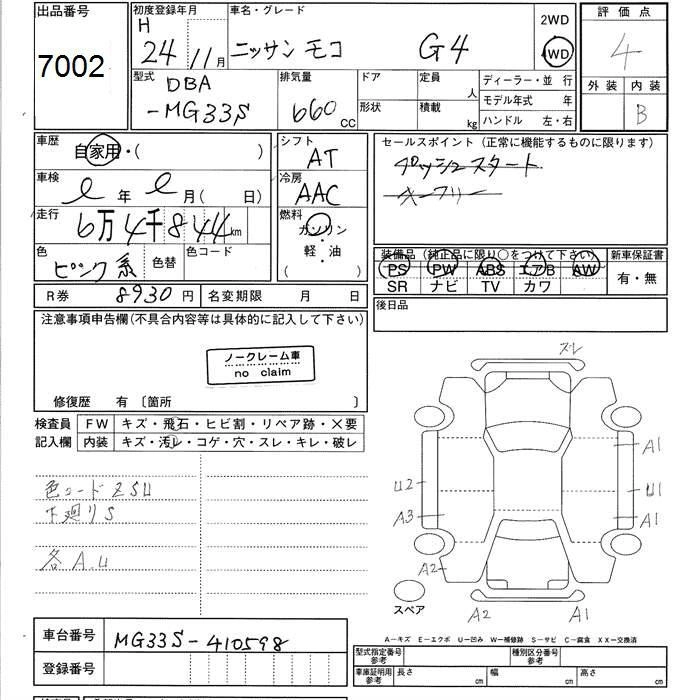 出品番号
7002
初度登録年月
H
24 11月
車名・グレード
ニッサン モコ G4
2WD
4WD
評価点
4
外装 内装
B
型式
DBA
-MG33S
排気量
660 CC
ドア
形状
定員 人
積載 kg
ディーラー・並 行
モデル年式 年
ハンドル 左・右
車歴
自家用・( )
車検
年 月( 日)
走行
6万4千844km
色
ピンク系
色替
色コード
シフト
AT
冷房
AAC
燃料
ガソリン
軽・油
( )
セールスポイント(正常に機能するものに限ります)
プッシュスタート
キーフリー
装備品(純正品に限り○をつけて下さい)
PS PW ABS エアB AW
SR ナビ TV カワ
新車保証書
有・無
R券 8930円
名変期限 月 日
後日品
注意事項申告欄(不具合内容等は具体的に記入して下さい)
ノークレーム車
no claim
修復歴 有〔箇所 〕
検査員
記入欄
FW キズ・飛石・ヒビ割・リペア跡・×要
内装 キズ・汚れ・コゲ・穴・スレ・キレ・破レ
色コード ZSU
下廻りS
各A.U
スレ
A1
U2
U1
A3
A1
A2
スペア
A2
A1
車台番号 MG33S-410598
登録番号
A-キズ E-エクボ U-凹み W-補修跡 S-サビ C-腐食 XX-交換済
型式指定番号
参考
種別区分番号
参考
車庫証明用
参考
長さ cm
幅 cm
高さ cm